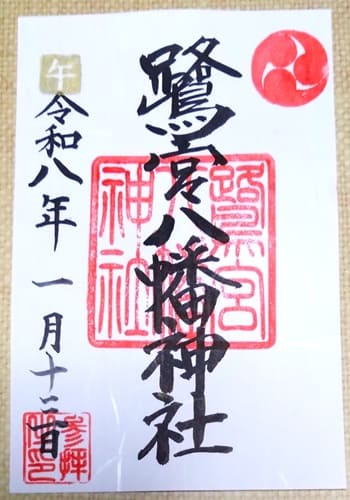 鷺宮八幡神社
鷺宮
八幡
神社
午
令和八年一月十二日
参拝